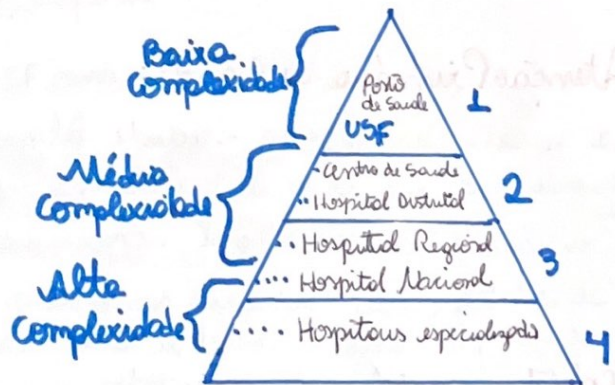 Baixa
Complexidade
Posto
de Saude
USF
1
Média
Complexidade
Centro de Saude
Hospital Distrital
2
Hospital Regional
Hospital Nacional
3
Alta
Complexidade
Hospitais especializado
4